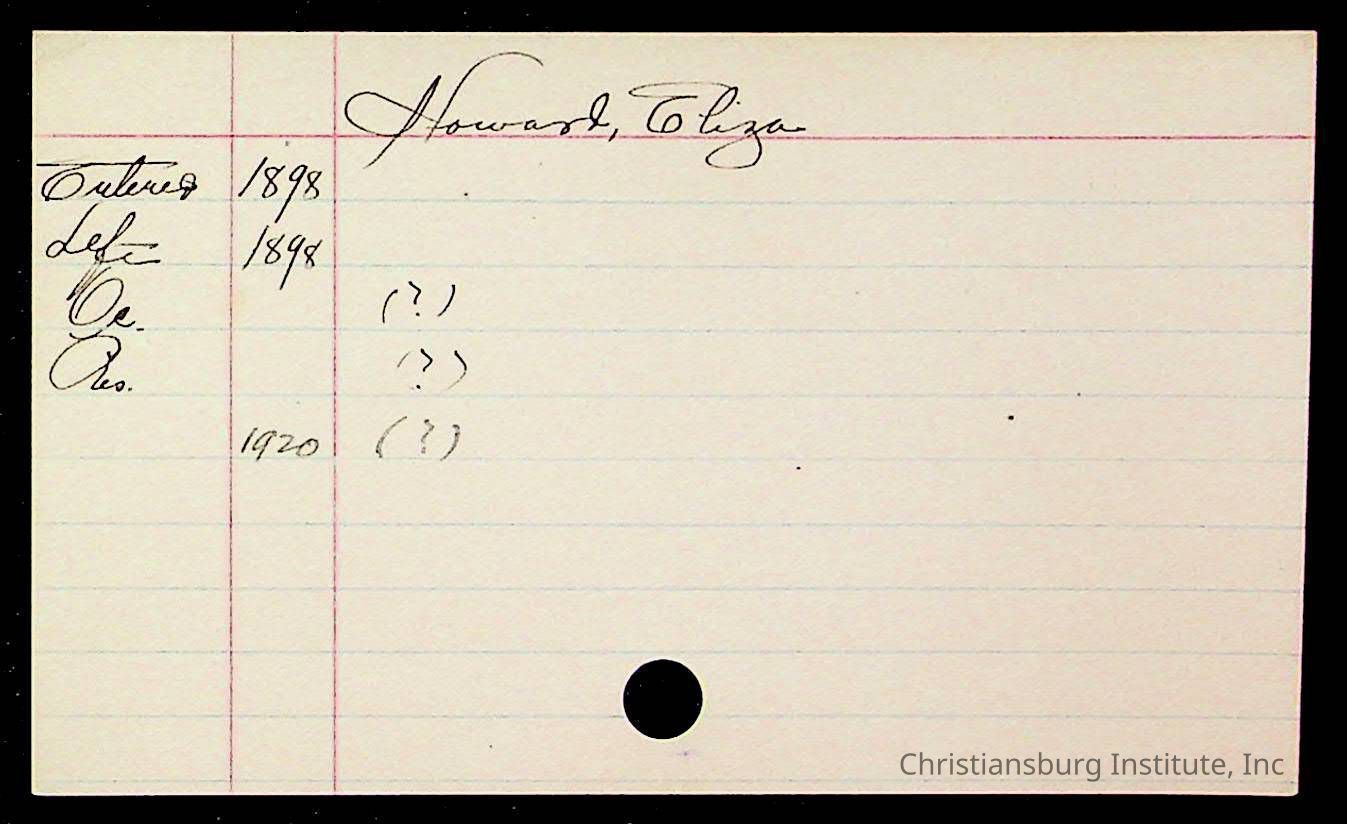 Howard, Eliza
Entered 1898
Left 1898
Oc. (?)
Res. (?)
1920 (?)
Christiansburg Institute, Inc